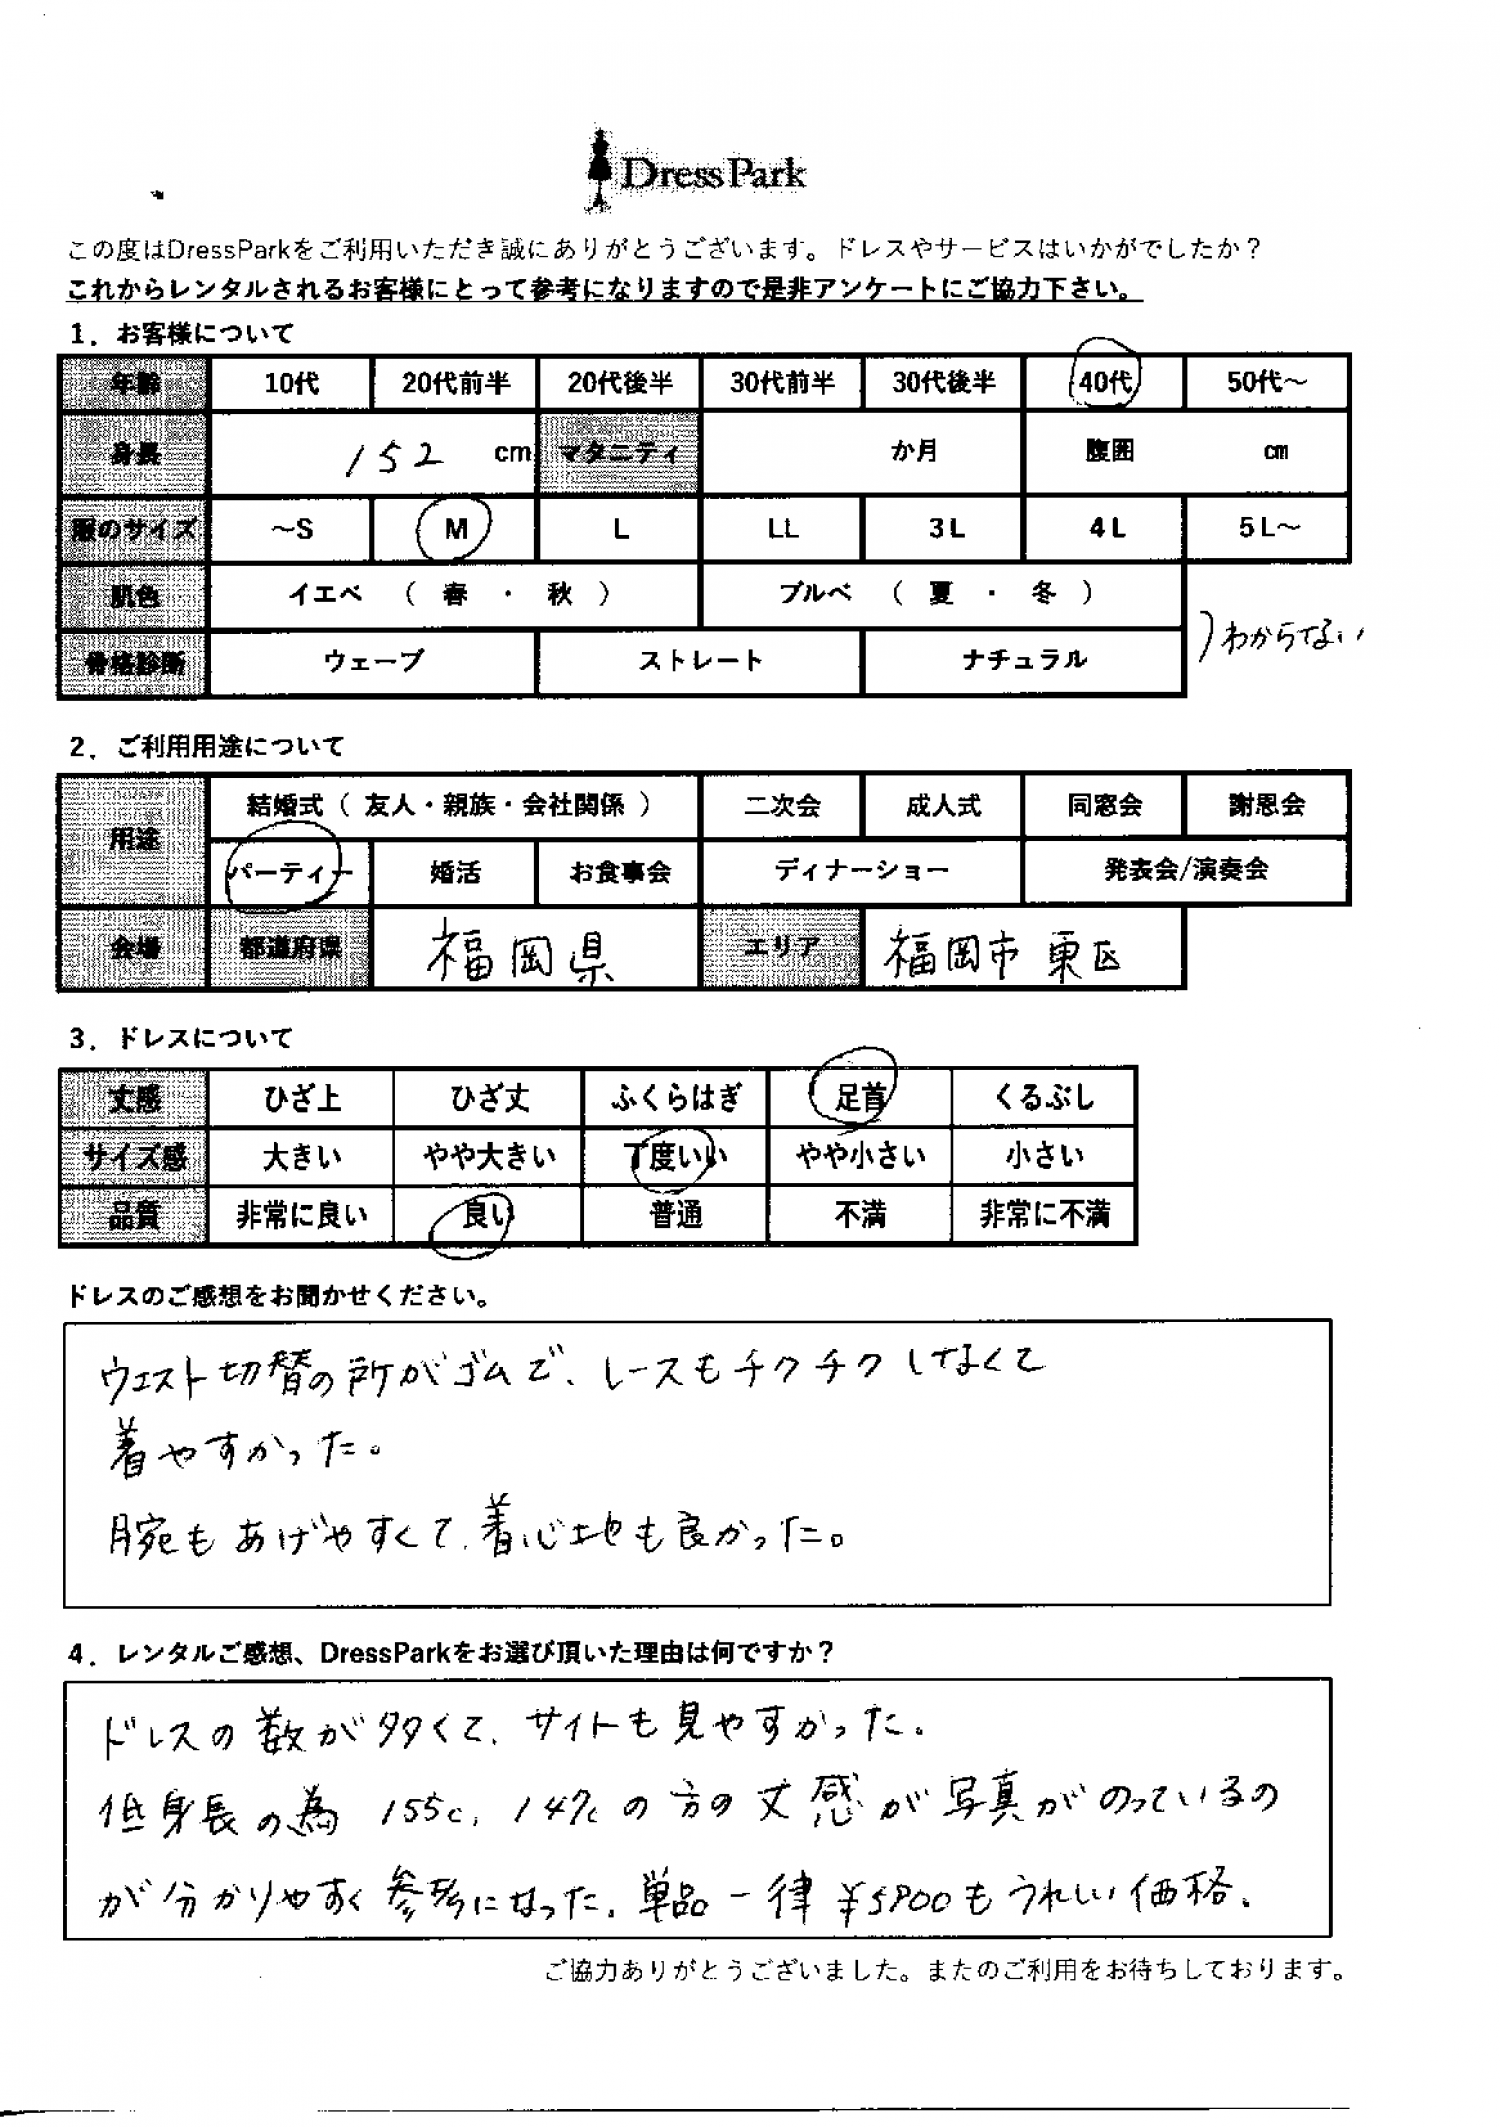 DressPark
この度はDressParkをご利用いただき誠にありがとうございます。ドレスやサービスはいかがでしたか？
これからレンタルされるお客様にとって参考になりますので是非アンケートにご協力下さい。
1．お客様について
年齢 10代 20代前半 20代後半 30代前半 30代後半 40代 50代～
身長 152 cm マタニティ か月 腹囲 cm
服のサイズ ～S M L LL 3L 4L 5L～
肌色 イエベ （ 春 ・ 秋 ） ブルベ （ 夏 ・ 冬 ）
)わからない
骨格診断 ウェーブ ストレート ナチュラル
2．ご利用用途について
用途 結婚式（ 友人・親族・会社関係 ） 二次会 成人式 同窓会 謝恩会
パーティー 婚活 お食事会 ディナーショー 発表会/演奏会
会場 都道府県 福岡県 エリア 福岡市 東区
3．ドレスについて
丈感 ひざ上 ひざ丈 ふくらはぎ 足首 くるぶし
サイズ感 大きい やや大きい 丁度いい やや小さい 小さい
品質 非常に良い 良い 普通 不満 非常に不満
ドレスのご感想をお聞かせください。
ウエスト切替の所がゴムで、レースもチクチクしなくて
着やすかった。
腕もあげやすくて、着心地も良かった。
4．レンタルご感想、DressParkをお選び頂いた理由は何ですか？
ドレスの数が多くて、サイトも見やすかった。
低身長の為 155c, 147cの方の丈感が写真がのっているの
が分かりやすく参考になった。単品一律¥5900もうれしい価格。
ご協力ありがとうございました。またのご利用をお待ちしております。